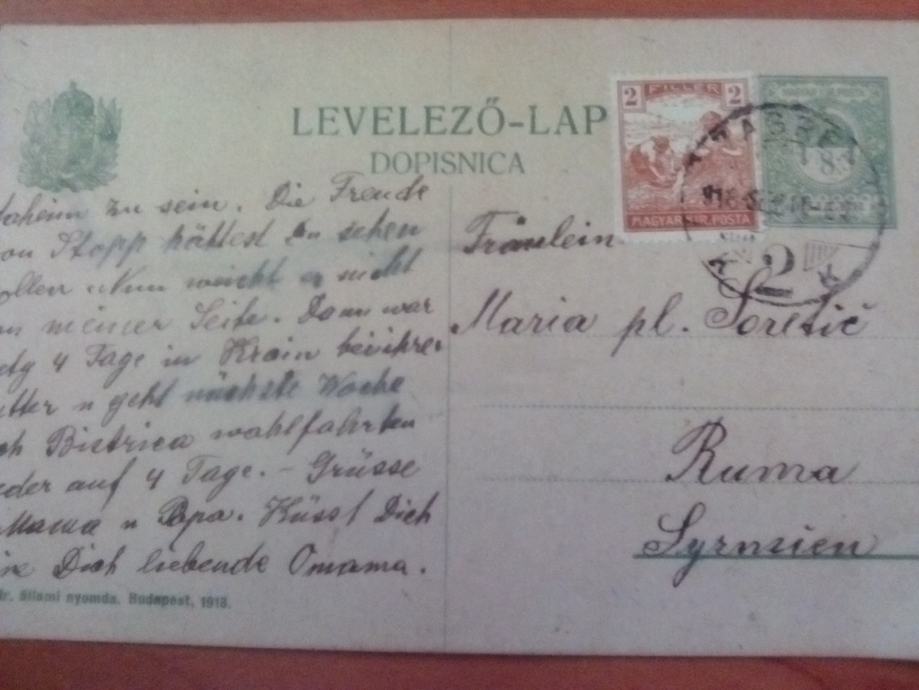 LEVELEZŐ-LAP
DOPISNICA
2 FILLER 2
MAGYAR KIR. POSTA
8
ZAGREB
2
daheim zu sein. Die Freude
von Stopp hättest Du sehen
sollen. Nun weicht er nicht
von meiner Seite. Dann war
4 Tage in Krain bei ihrer
Mutter u geht nächste Woche
nach Bistrica wahlfahrten
wieder auf 4 Tage. - Grüsse
Mama u Papa. Küsst Dich
Dich liebende Omama.
állami nyomda. Budapest, 1918.
Fräulein
Maria pl.
Ruma
Syrmien